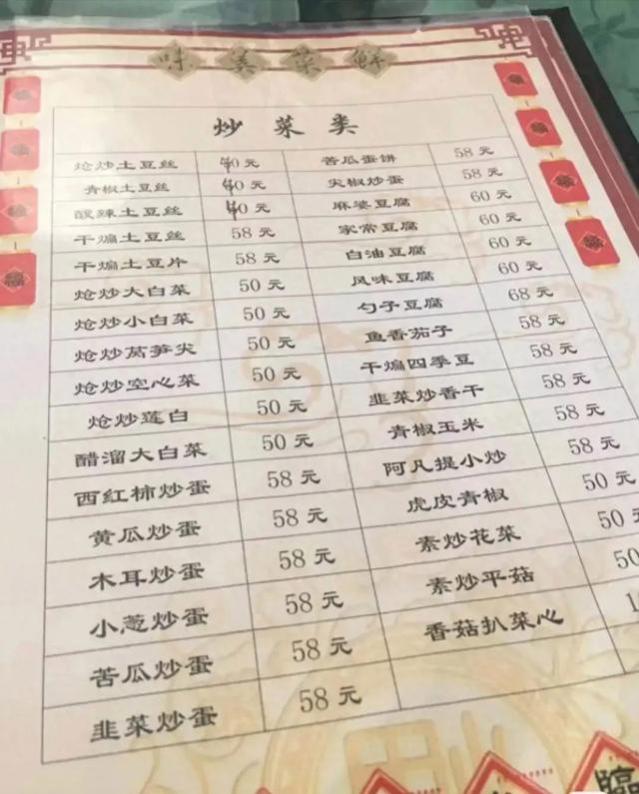 味美菜鲜
炒菜类
炝炒土豆丝 40元 苦瓜蛋饼 58元
青椒土豆丝 40元 尖椒炒蛋 58元
酸辣土豆丝 40元 麻婆豆腐 60元
干煸土豆丝 58元 家常豆腐 60元
干煸土豆片 58元 白油豆腐 60元
炝炒大白菜 50元 风味豆腐 60元
炝炒小白菜 50元 勺子豆腐 68元
炝炒莴笋尖 50元 鱼香茄子 58元
炝炒空心菜 50元 干煸四季豆 58元
炝炒莲白 50元 韭菜炒香干 58元
醋溜大白菜 50元 青椒玉米 58元
西红柿炒蛋 58元 阿凡提小炒 58元
黄瓜炒蛋 58元 虎皮青椒 50元
木耳炒蛋 58元 素炒花菜 50元
小葱炒蛋 58元 素炒平菇 50
苦瓜炒蛋 58元 香菇扒菜心
韭菜炒蛋 58元
臨